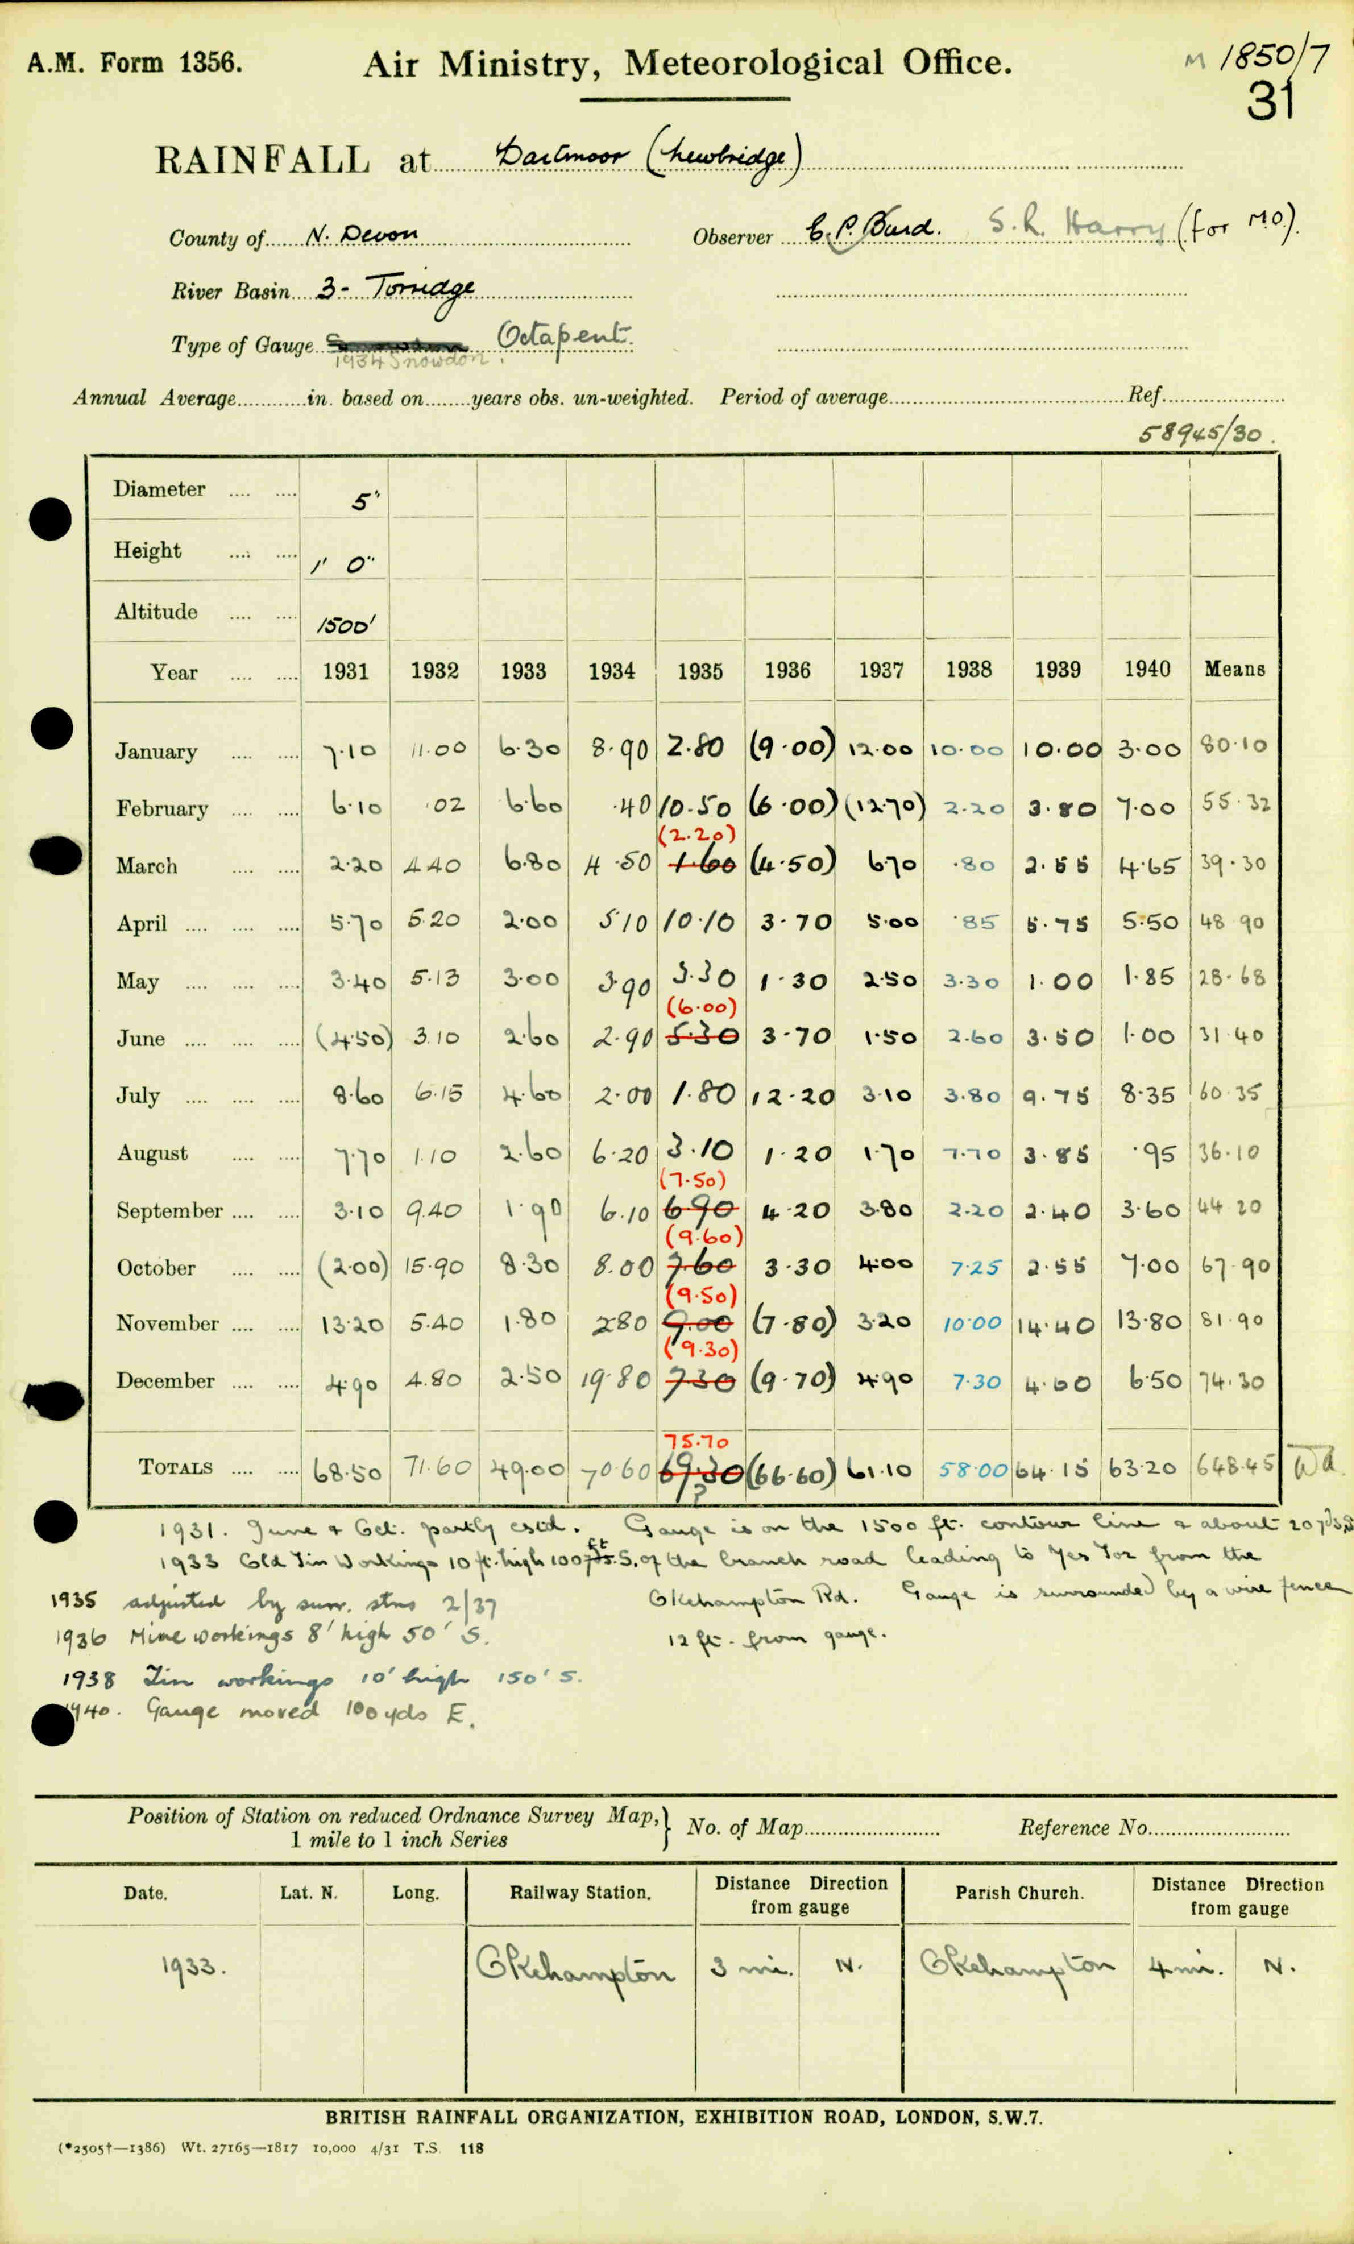 A.M. Form 1356.
Air Ministry, Meteorological Office.
M 1850/7
31
RAINFALL at Dartmoor (Newbridge)
County of N. Devon Observer C. P. Burd. S. R. Harry (for MO).
River Basin 3 - Torridge
Type of Gauge Octapent.
1934 Snowdon.
Annual Average in. based on years obs. un-weighted. Period of average Ref.
58945/30.
Diameter 5"
Height 1' 0"
Altitude 1500'
Year 1931 1932 1933 1934 1935 1936 1937 1938 1939 1940 Means
January 7.10 11.00 6.30 8.90 2.80 (9.00) 12.00 10.00 10.00 3.00 80.10
February 6.10 .02 6.60 .40 10.50 (6.00) (12.70) 2.20 3.80 7.00 55.32
(2.20)
March 2.20 4.40 6.80 4.50 1.60 (4.50) 6.70 .80 2.55 4.65 39.30
April 5.70 5.20 2.00 5.10 10.10 3.70 5.00 .85 5.75 5.50 48.90
May 3.40 5.13 3.00 3.90 3.30 1.30 2.50 3.30 1.00 1.85 28.68
(6.00)
June (4.50) 3.10 2.60 2.90 5.30 3.70 1.50 2.60 3.50 1.00 31.40
July 8.60 6.15 4.60 2.00 1.80 12.20 3.10 3.80 9.75 8.35 60.35
August 7.70 1.10 2.60 6.20 3.10 1.20 1.70 7.70 3.85 .95 36.10
(7.50)
September 3.10 9.40 1.90 6.10 6.90 4.20 3.80 2.20 2.40 3.60 44.20
(9.60)
October (2.00) 15.90 8.30 8.00 7.60 3.30 4.00 7.25 2.55 7.00 67.90
(9.50)
November 13.20 5.40 1.80 2.80 9.00 (7.80) 3.20 10.00 14.40 13.80 81.90
(9.30)
December 4.90 4.80 2.50 19.80 7.30 (9.70) 4.90 7.30 4.60 6.50 74.30
75.70
TOTALS 68.50 71.60 49.00 70.60 69.30 (66.60) 61.10 58.00 64.15 63.20 648.45 Wd
?
1931. June & Oct. partly estd. Gauge is on the 1500 ft. contour line & about 20 yds
1933 Old Tin Workings 10 ft. high 100 ft S. of the branch road leading to Yes Tor from the
1935 adjusted by surr. stns 2/37 Okehampton Rd. Gauge is surrounded by a wire fence
1936 Mine workings 8' high 50' S. 12 ft. from gauge.
1938 Tin workings 10' high 150' S.
1940. Gauge moved 100 yds E.
Position of Station on reduced Ordnance Survey Map, } No. of Map Reference No.
1 mile to 1 inch Series
Date. Lat. N. Long. Railway Station. Distance Direction from gauge Parish Church. Distance Direction from gauge
1933. Okehampton 3 mi. N. Okehampton 4 mi. N.
BRITISH RAINFALL ORGANIZATION, EXHIBITION ROAD, LONDON, S.W.7.
(*2505†—1386) Wt. 27165—1817 10,000 4/31 T.S. 118